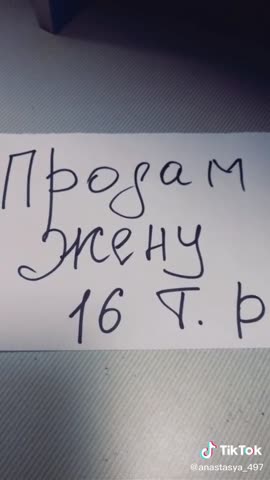 Продам
жену
16 т. р
TikTok
@anastasya_497